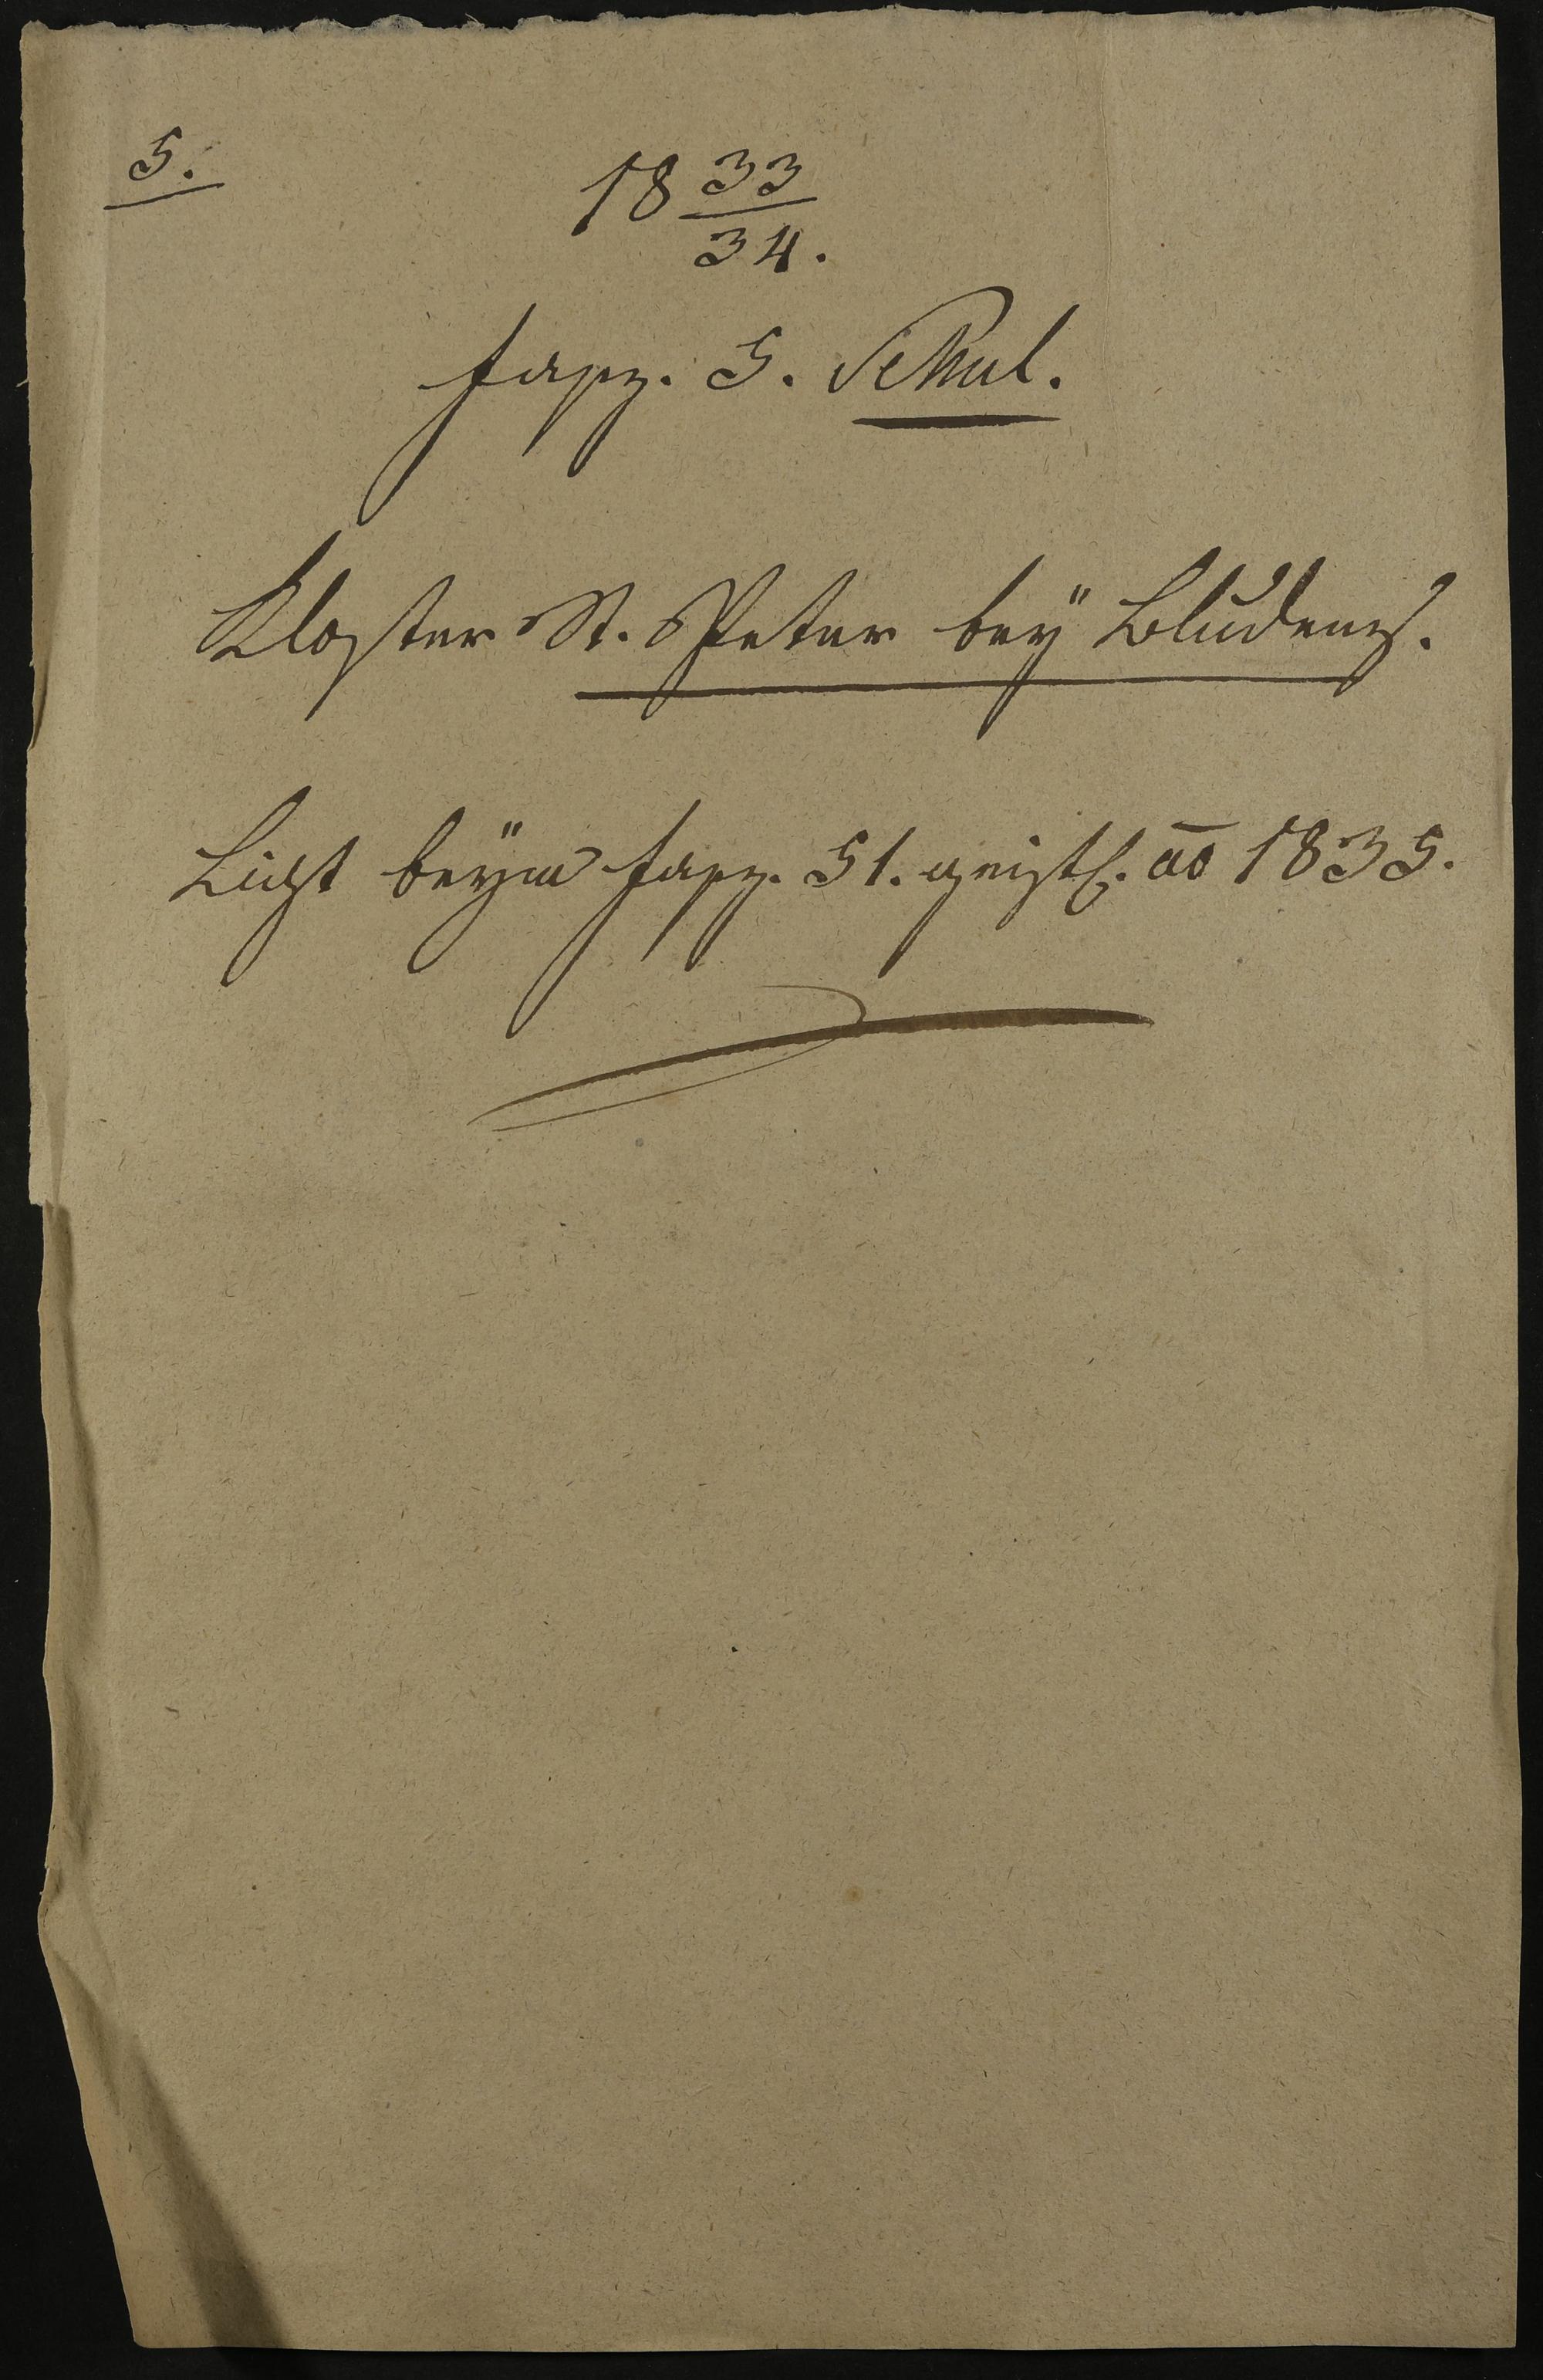 5.
18 33/34.
fasz. 5. Schul.
Kloster St. Peter bey Bludenz.
Ligt beym fasz. 51. geistl. ao 1835.